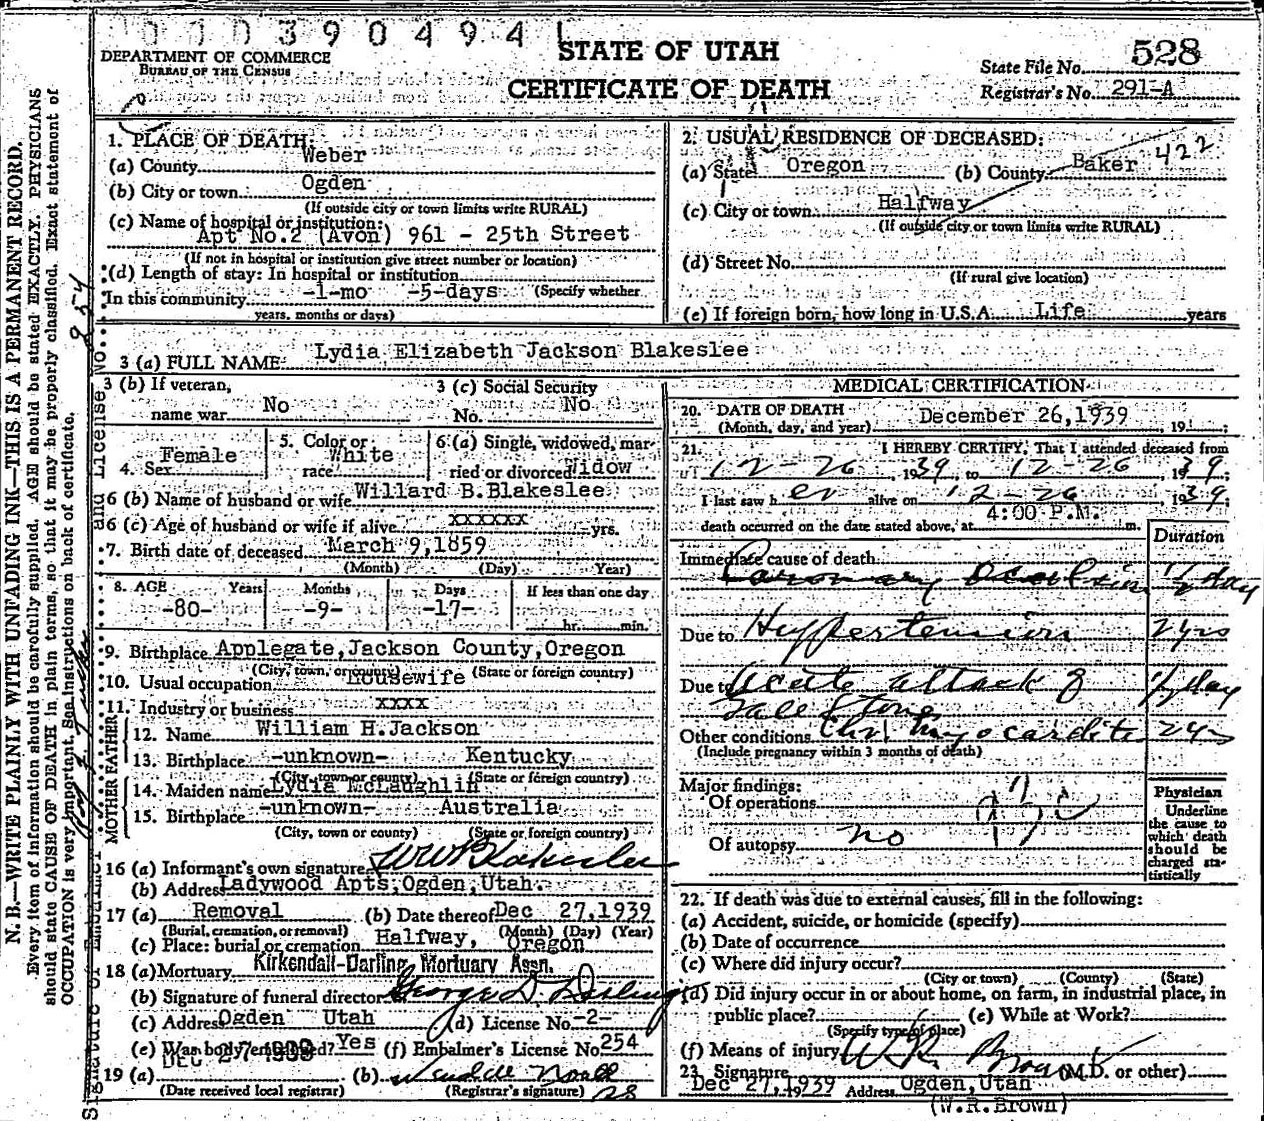 000390494
DEPARTMENT OF COMMERCE
BUREAU OF THE CENSUS
STATE OF UTAH
CERTIFICATE OF DEATH
528
State File No.
Registrar's No. 291-A
1. PLACE OF DEATH:
(a) County Weber
(b) City or town Ogden
(If outside city or town limits write RURAL)
(c) Name of hospital or institution:
Apt No.2 (Avon) 961 - 25th Street
(If not in hospital or institution give street number or location)
(d) Length of stay: In hospital or institution
In this community -1-mo -5-days (Specify whether
years, months or days)
2. USUAL RESIDENCE OF DECEASED:
(a) State Oregon (b) County Baker 422
(c) City or town Halfway
(If outside city or town limits write RURAL)
(d) Street No.
(If rural give location)
(e) If foreign born, how long in U.S.A. Life years
3 (a) FULL NAME Lydia Elizabeth Jackson Blakeslee
3 (b) If veteran, name war No
3 (c) Social Security No. No
4. Sex Female
5. Color or race White
6 (a) Single, widowed, married or divorced Widow
6 (b) Name of husband or wife Willard B.Blakeslee
6 (c) Age of husband or wife if alive xxxxxx yrs.
7. Birth date of deceased March 9,1859
(Month) (Day) Year)
8. AGE Years Months Days If less than one day
-80- -9- -17- hr. min.
9. Birthplace Applegate,Jackson County,Oregon
(City, town, or county) (State or foreign country)
10. Usual occupation Housewife
11. Industry or business xxxx
FATHER
12. Name William H.Jackson
13. Birthplace -unknown- Kentucky
(City, town or county) (State or foreign country)
MOTHER
14. Maiden name Lydia McLaughlin
15. Birthplace -unknown- Australia
(City, town or county) (State or foreign country)
16 (a) Informant's own signature W W Blakeslee
(b) Address Ladywood Apts,Ogden,Utah.
17 (a) Removal (b) Date thereof Dec 27,1939
(Burial, cremation, or removal) (Month) (Day) (Year)
(c) Place: burial or cremation Halfway, Oregon
18 (a) Mortuary Kirkendall-Darling Mortuary Assn.
(b) Signature of funeral director George D. Darling
(c) Address Ogden Utah (d) License No. -2-
(e) Was body embalmed? Yes (f) Embalmer's License No. 254
19 (a) DEC 27 1939 (b)
(Date received local registrar) (Registrar's signature) 28
MEDICAL CERTIFICATION
20. DATE OF DEATH
(Month, day, and year) December 26,1939, 19 ;
21. I HEREBY CERTIFY, That I attended deceased from
12-26, 1939, to 12-26 1939;
I last saw her alive on 12-26 1939
death occurred on the date stated above, at 4:00 P.M. m.
Duration
Immediate cause of death
Coronary Occlusion 1/2 day
Due to Hypertension 2 yrs
Due to Acute attack of 1/2 day
Gall Stones
Other conditions Chr. myocarditis 2 yrs
(Include pregnancy within 3 months of death)
Major findings:
Of operations
Of autopsy no
Physician
Underline
the cause to
which death
should be
charged sta-
tistically
22. If death was due to external causes, fill in the following:
(a) Accident, suicide, or homicide (specify)
(b) Date of occurrence
(c) Where did injury occur?
(City or town) (County) (State)
(d) Did injury occur in or about home, on farm, in industrial place, in
public place? (e) While at Work?
(Specify type of place)
(f) Means of injury
23. Signature W.R. Brown (M.D. or other)
Dec 27,1939 Address Ogden,Utah
(W.R.Brown)
N. B.—WRITE PLAINLY WITH UNFADING INK—THIS IS A PERMANENT RECORD.
Every item of information should be carefully supplied. AGE should be stated EXACTLY. PHYSICIANS
should state CAUSE OF DEATH in plain terms, so that it may be properly classified. Exact statement of
OCCUPATION is very important. See instructions on back of certificate.
Signature of Embalmer and License No. 254